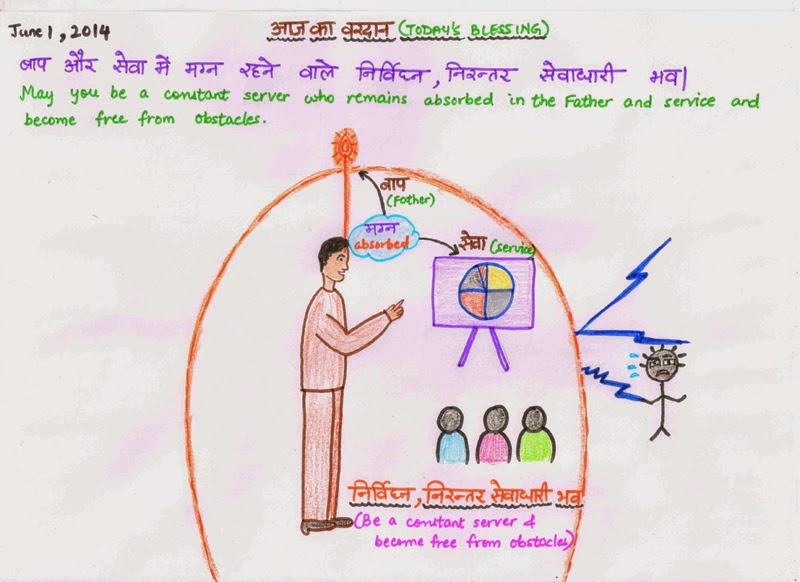 June 1, 2014
आज का वरदान (TODAY'S BLESSING)
बाप और सेवा में मग्न रहने वाले निर्विघ्न, निरन्तर सेवाधारी भव|
May you be a constant server who remains absorbed in the Father and service and
become free from obstacles.
बाप
(Father)
मग्न
absorbed
सेवा (service)
निर्विघ्न, निरन्तर सेवाधारी भव
(Be a constant server &
become free from obstacles)